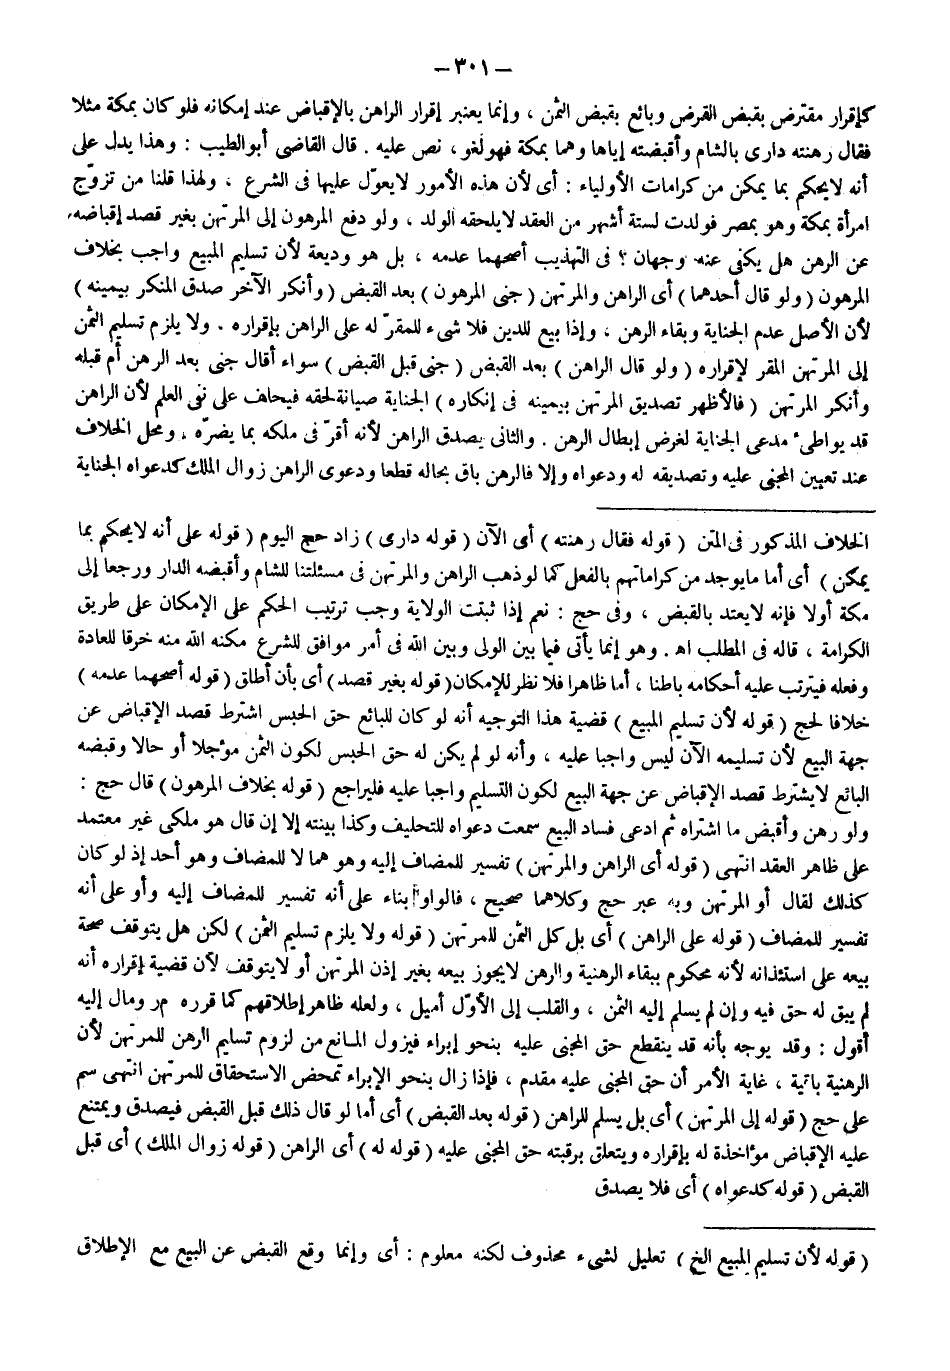 – ٣٠١ –
كإقرار مقترض بقبض القرض وبائع بقبض الثمن ، وإنما يعتبر إقرار الراهن بالإقباض عند إمكانه فلو كان بمكة مثلا
فقال رهنته دارى بالشام وأقبضته إياها وهما بمكة فهو لغو ، نص عليه . قال القاضى أبوالطيب : وهذا يدل على
أنه لايحكم بما يمكن من كرامات الأولياء : أى لأن هذه الأمور لايعوّل عليها فى الشرع ، ولهذا قلنا من تزوّج
امرأة بمكة وهو بمصر فولدت لستة أشهر من العقد لايلحقه الولد ، ولو دفع المرهون إلى المرتهن بغير قصد إقباضه
عن الرهن هل يكفى عنه وجهان ؟ فى التهذيب أصحهما عدمه ، بل هو وديعة لأن تسليم المبيع واجب بخلاف
المرهون ( ولو قال أحدهما ) أى الراهن والمرتهن ( جنى المرهون ) بعد القبض ( وأنكر الآخر صدق المنكر بيمينه )
لأن الأصل عدم الجناية وبقاء الرهن ، وإذا بيع للدين فلا شىء للمقرّ له على الراهن بإقراره . ولا يلزم تسليم الثمن
إلى المرتهن المقر لإقراره ( ولو قال الراهن ) بعد القبض ( جنى قبل القبض ) سواء أقال جنى بعد الرهن أم قبله
وأنكر المرتهن ( فالأظهر تصديق المرتهن بيمينه فى إنكاره ) الجناية صيانة لحقه فيحلف على نفى العلم لأن الراهن
قد يواطىء مدعى الجناية لغرض إبطال الرهن . والثانى يصدق الراهن لأنه أقرّ فى ملكه بما يضرّه ، ومحل الخلاف
عند تعيين المجنى عليه وتصديقه له ودعواه وإلا فالرهن باق بحاله قطعا ودعوى الراهن زوال الملك كدعواه الجناية
الخلاف المذكور فى المتن ( قوله فقال رهنته ) أى الآن ( قوله دارى ) زاد حج اليوم ( قوله على أنه لايحكم بما
يمكن ) أى أما مايوجد من كراماتهم بالفعل كما لو ذهب الراهن والمرتهن فى مسئلتنا للشام وأقبضه الدار ورجعا إلى
مكة أولا فإنه لايعتد بالقبض ، وفى حج : نعم إذا ثبتت الولاية وجب ترتيب الحكم على الإمكان على طريق
الكرامة ، قاله فى المطلب اه . وهو إنما يأتى فيما بين الولى وبين الله فى أمر موافق للشرع مكنه الله منه خرقا للعادة
وفعله فيترتب عليه أحكامه باطنا ، أما ظاهرا فلا نظر للإمكان ( قوله بغير قصد ) أى بأن أطلق ( قوله أصحهما عدمه )
خلافا لحج ( قوله لأن تسليم المبيع ) قضية هذا التوجيه أنه لو كان للبائع حق الحبس اشترط قصد الإقباض عن
جهة البيع لأن تسليمه الآن ليس واجبا عليه ، وأنه لو لم يكن له حق الحبس لكون الثمن مؤجلا أو حالا وقبضه
البائع لايشترط قصد الإقباض عن جهة البيع لكون التسليم واجبا عليه فليراجع ( قوله بخلاف المرهون ) قال حج :
ولو رهن وأقبض ما اشتراه ثم ادعى فساد البيع سمعت دعواه للتحليف وكذا بينته إلا إن قال هو ملكى غير معتمد
على ظاهر العقد انتهى ( قوله أى الراهن والمرتهن ) تفسير للمضاف إليه وهو هما لا للمضاف وهو أحد إذ لو كان
كذلك لقال أو المرتهن وبه عبر حج وكلاهما صحيح ، فالواو بناء على أنه تفسير للمضاف إليه وأو على أنه
تفسير للمضاف ( قوله على الراهن ) أى بل كل الثمن للمرتهن ( قوله ولا يلزم تسليم الثمن ) لكن هل يتوقف صحة
بيعه على استئذانه لأنه محكوم ببقاء الرهنية والرهن لايجوز بيعه بغير إذن المرتهن أو لايتوقف لأن قضية إقراره أنه
لم يبق له حق فيه وإن لم يسلم إليه الثمن ، والقلب إلى الأوّل أميل ، ولعله ظاهر إطلاقهم كما قرره مر ومال إليه
أقول : وقد يوجه بأنه قد ينقطع حق المجنى عليه بنحو إبراء فيزول المانع من لزوم تسليم الرهن للمرتهن لأن
الرهنية باقية ، غاية الأمر أن حق المجنى عليه مقدم ، فإذا زال بنحو الإبراء تمحض الاستحقاق للمرتهن انتهى سم
على حج ( قوله إلى المرتهن ) أى بل يسلم للراهن ( قوله بعد القبض ) أى أما لو قال ذلك قبل القبض فيصدق ويمتنع
عليه الإقباض مؤاخذة له بإقراره ويتعلق برقبته حق المجنى عليه ( قوله له ) أى الراهن ( قوله زوال الملك ) أى قبل
القبض ( قوله كدعواه ) أى فلا يصدق
( قوله لأن تسليم المبيع الخ ) تعليل لشىء محذوف لكنه معلوم : أى وإنما وقع القبض عن البيع مع الإطلاق